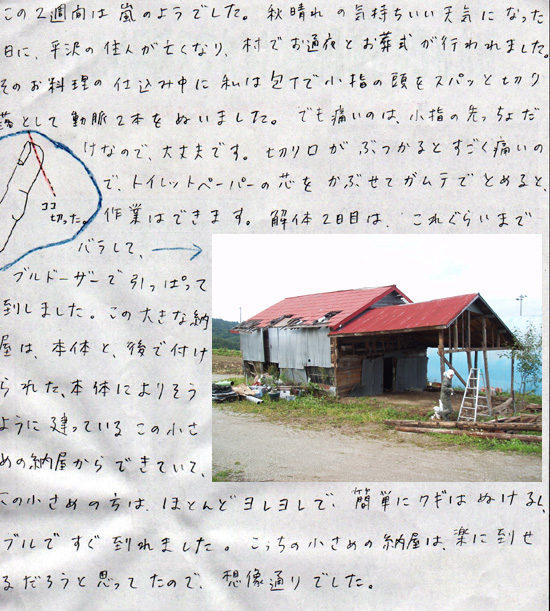 この2週間は嵐のようでした。秋晴れの気持ちいい天気になった
日に、平沢の住人が亡くなり、村でお通夜とお葬式が行われました。
そのお料理の仕込み中に私は包丁で小指の頭をスパッと切り
落として動脈2本をぬいました。でも痛いのは、小指の先っちょだ
けなので、大丈夫です。切り口がぶつかるとすごく痛いの
で、トイレットペーパーの芯をかぶせてガムテでとめると、
作業はできます。解体2日目は、これぐらいまで
ココ
切った。
バラして、
ブルドーザーで引っぱって
倒しました。この大きな納
屋は、本体と、後で付け
られた、本体によりそう
ように建っているこの小さ
めの納屋からできていて、
この小さめの方は、ほとんどヨレヨレで、簡単にクギはぬけるし、
ブルですぐ到れました。こっちの小さめの納屋は、楽に到せ
るだろうと思ってたので、想像通りでした。